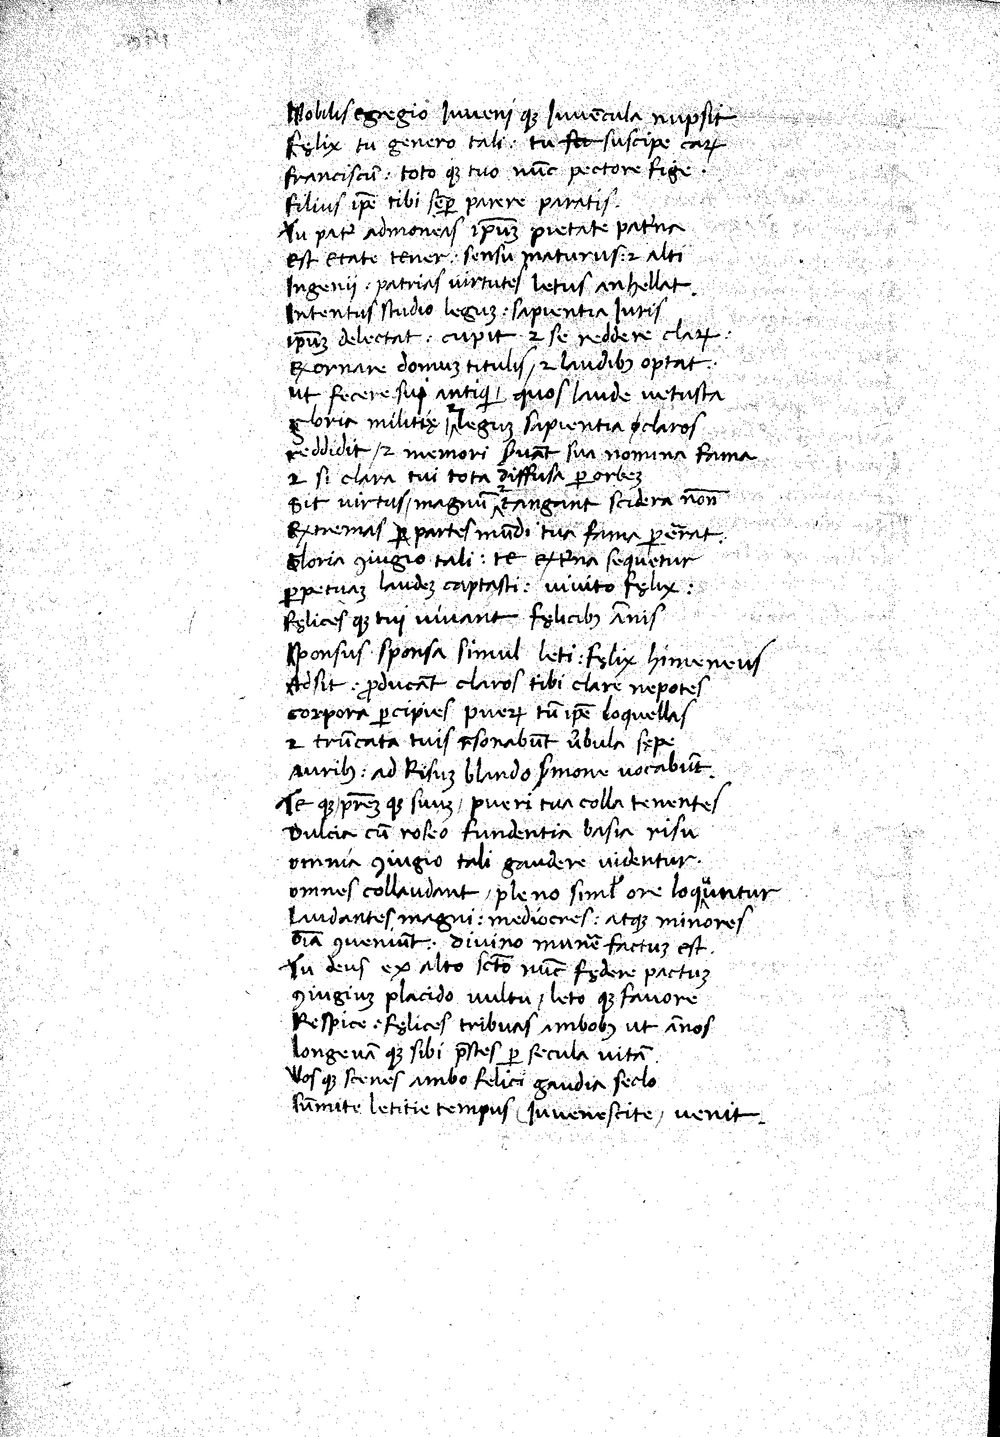 Nobilis egregio Iuveni qꝫ Iuvēcula nupsit
fęlix tu genero tali : tu suscipe caꝝ
franciscū : toto qꝫ tuo nūc pectore fige .
filius ip̄e tibi sēꝑ parere paratis .
Tu pater admoneas ip̄uꝫ pietate paterna
Est Etate tener : sensu maturus : ⁊ alti
Ingenii : patrias virtutes letus anhellat .
Intentus studio leguꝫ : sapientia Iuris
ip̄uꝫ delectat : cupit ⁊ se reddere claꝝ :
Exornare domuꝫ titulis / ⁊ laudibꝫ optat .
ut fecere sui antiqui / quos laude vetusta
gloria militię ⁊ leguꝫ sapientia claros
reddidit / ⁊ memori suāt sua nomina fama
⁊ si clara tui tota diffusa ꝑ orbeꝫ
Sit virtus / magnū ⁊ tangant scidera nomē
Extremas ꝑ partes mūdi tua fama ꝑerrat .
Gloria ꝯiugio tali : te externa sequetur
ꝑpetuaꝫ laudeꝫ captasti : vivito fęlix :
fęlices qꝫ tui vivant fęlicibꝫ ānis
Sponsus sponsa simul leti : fęlix himeneus
Adsit : ꝓducāt claros tibi clare nepotes
corpora ꝑcipies pueꝝ tū ip̄e loquellas
⁊ trūcata tuis resonabūt verbula sępe
Auribꝫ : ad Risuꝫ blando sermone vocabūt .
Te qꝫ / pr̄eꝫ qꝫ suuꝫ / pueri tua colla tenentes
Dulcia cū roseo fundentia basia risu
omnia ꝯiugio tali gaudere videntur .
omnes collaudant / pleno simul ore loquūtur
laudantes magni : mediocres : atqꝫ minores
oīa ꝯveniūt : divino munere factuꝫ est .
Tu deus ex alto sctō nūc fędere pactuꝫ
ꝯiugiuꝫ placido vultu / leto qꝫ favore
Respice : fęlices tribuas ambobꝫ ut ānos
longevā qꝫ sibi p̄stes ꝑ secula vitā .
Vos qꝫ scenes ambo felici gaudia seclo
sūmite letitie tempus / Iuvenescite / venit .